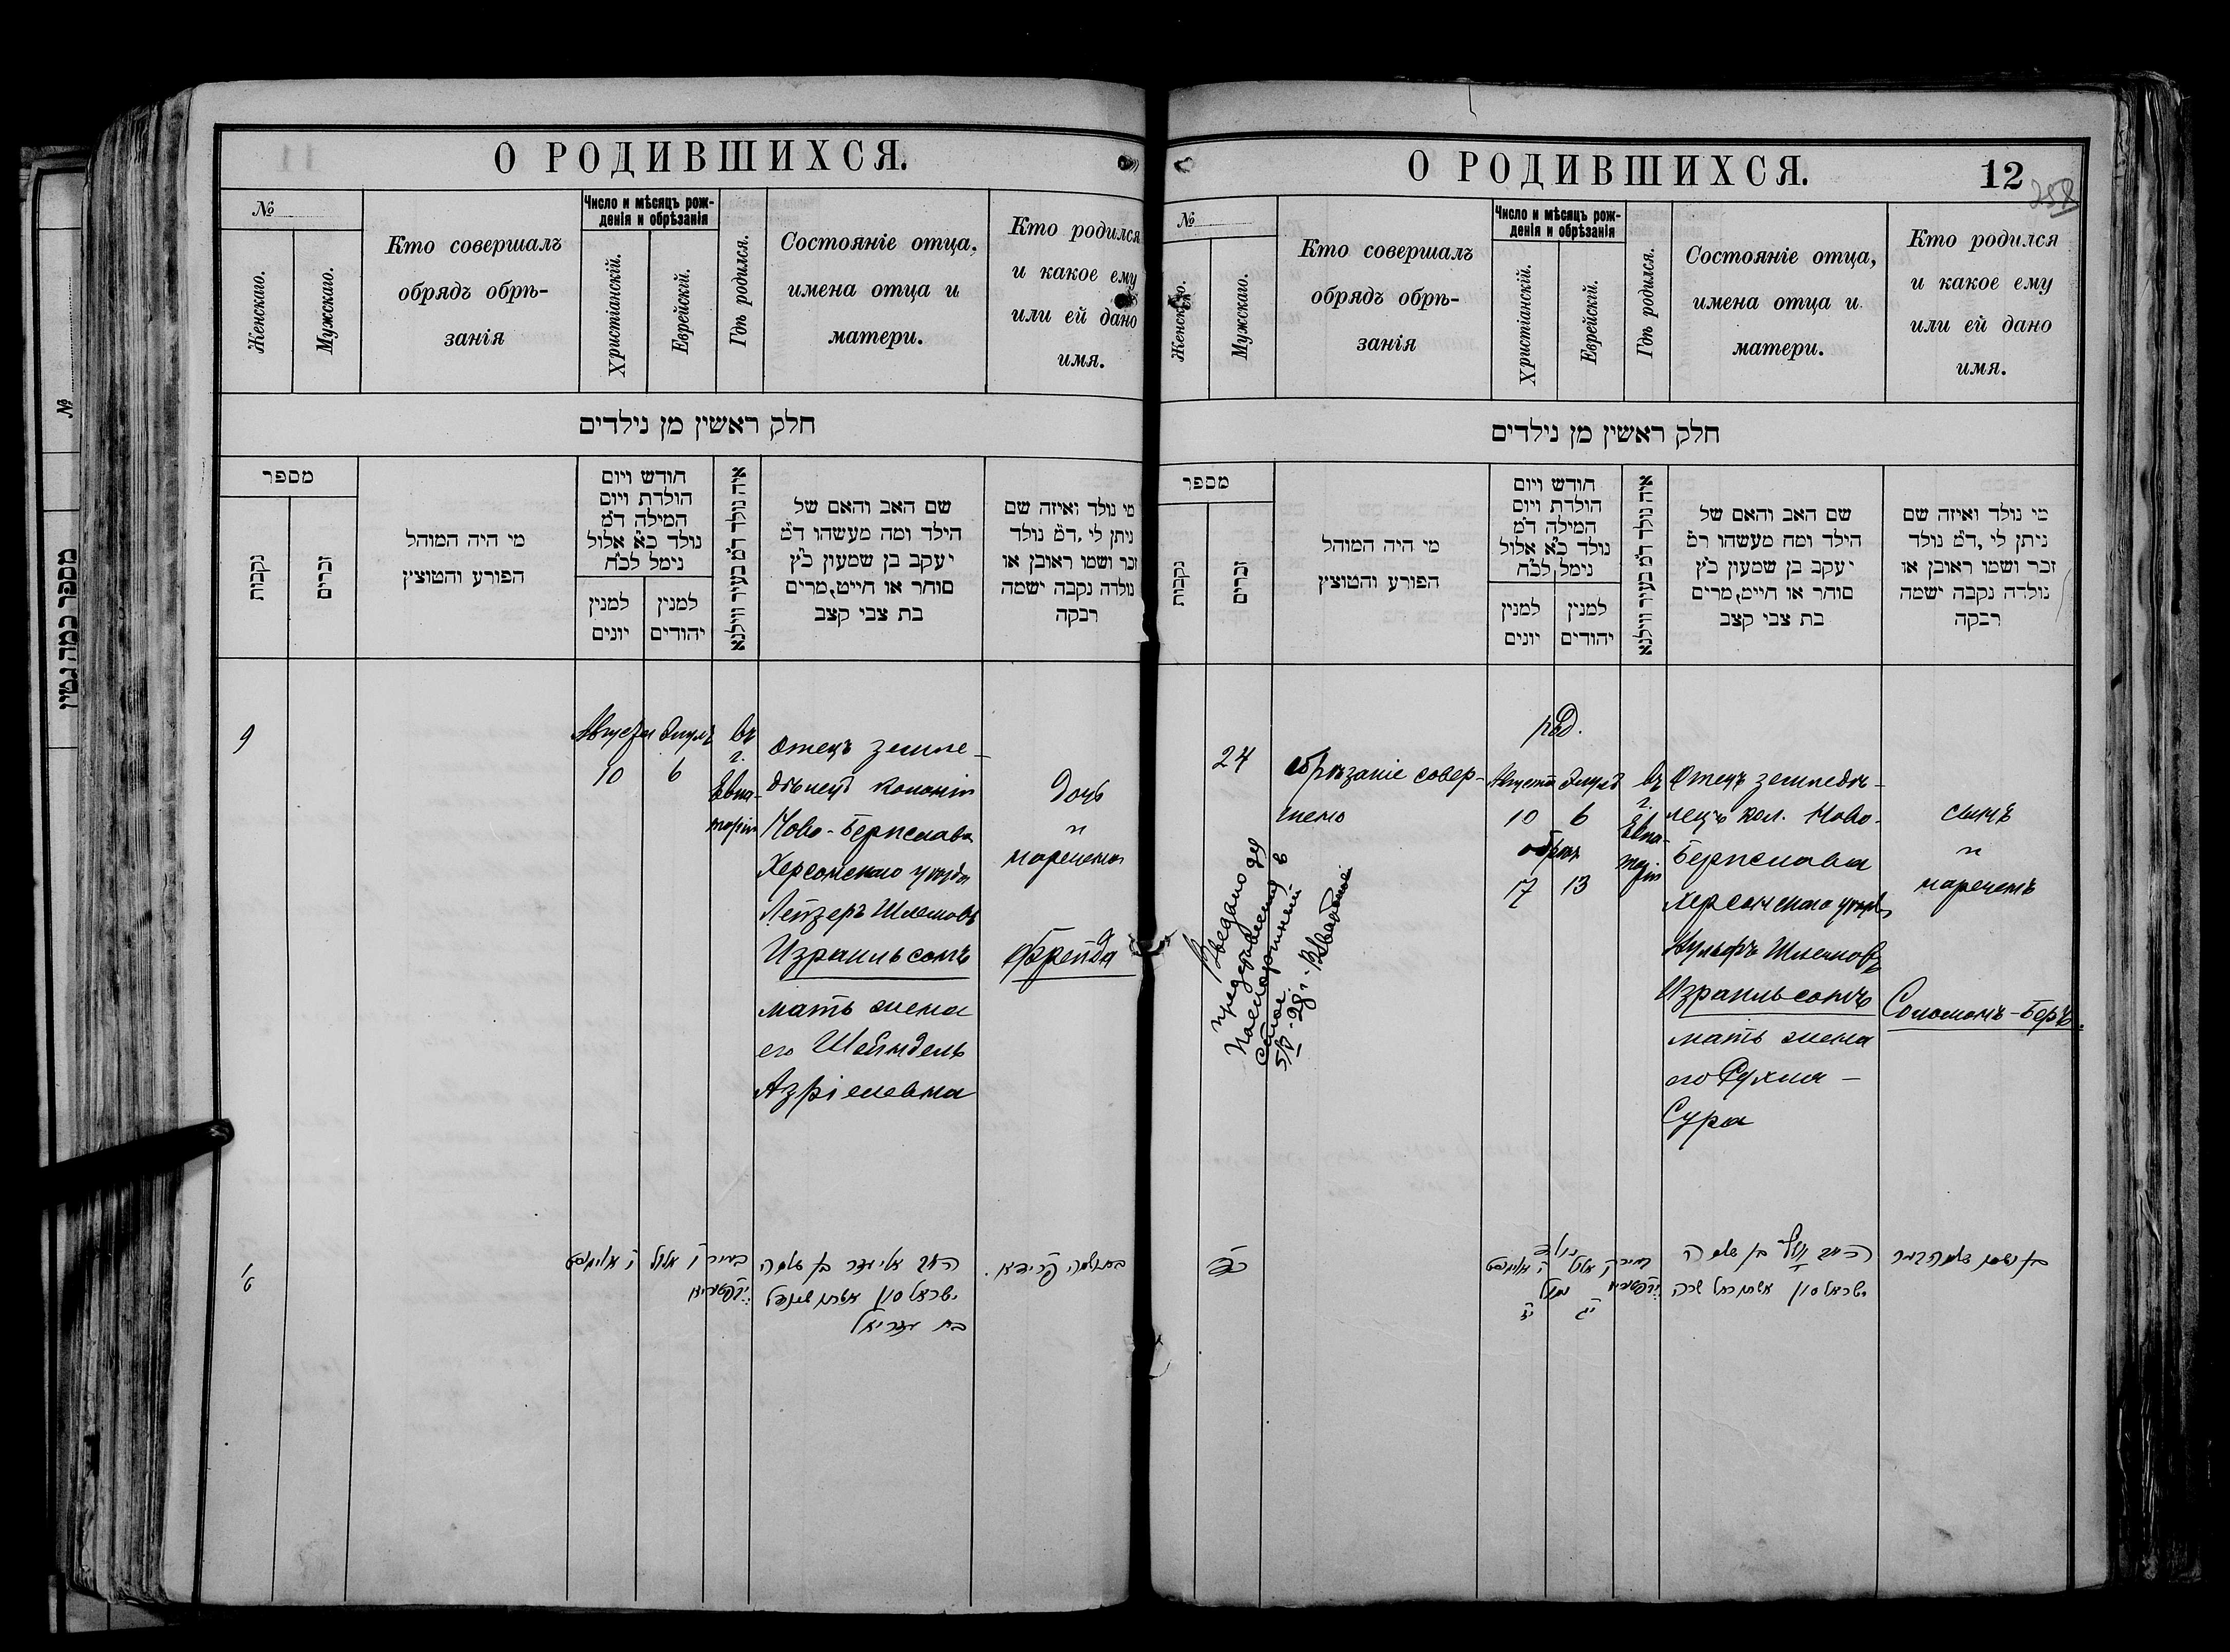 №
מספר כמה גטין
О РОДИВШИХСЯ.
№
Женскаго.
Мужскаго.
Кто совершалъ
обрядъ обрѣ-
занія
Число и мѣсяцъ рож-
денія и обрѣзанія
Христіанскій.
Еврейскій.
Гдѣ родился.
Состояніе отца,
имена отца и
матери.
Кто родился
и какое ему
или ей дано
имя.
חלק ראשין מן נילדים
מספר
נקבות
זכרים
מי היה המוהל
הפורע והמוצץ
חודש ויום
הולדת ויום
המילה ד״מ
נולד כ״א אלול
נימל לכ״ח
למנין
יונים
למנין
יהודים
איה נולד ד״מ בעיר ווילנא
שם האב והאם של
הילד ומה מעשהו ד״מ
יעקב בן שמעון כ״ץ
סוחר או חייט, מרים
בת צבי קצב
מי נולד ואיזה שם
ניתן לי, ד״מ נולד
זכר ושמו ראובן או
נולדה נקבה ישמה
רבקה
9
Августа Элулъ
10 6
въ
г.
Евпа-
торіи
Отецъ земле-
дѣлецъ колоніи
Ново-Берислава
Херсонскаго уѣзда
Лейзеръ Шлемовъ
Израильсонъ
мать жена
его Шейндель
Азріелевна
Дочь
и
наречена
Фрейда
ו אלול
אליעזר בן שלמה
ישראלסון
בת עזריאל
О РОДИВШИХСЯ.
12
258
№
Женскаго.
Мужскаго.
Кто совершалъ
обрядъ обрѣ-
занія
Число и мѣсяцъ рож-
денія и обрѣзанія
Христіанскій.
Еврейскій.
Гдѣ родился.
Состояніе отца,
имена отца и
матери.
Кто родился
и какое ему
или ей дано
имя.
חלק ראשין מן נילדים
מספר
נקבות
זכרים
מי היה המוהל
הפורע והמוצץ
חודש ויום
הולדת ויום
המילה ד״מ
נולד כ״א אלול
נימל לכ״ח
למנין
יונים
למנין
יהודים
איה נולד ד״מ בעיר ווילנא
שם האב והאם של
הילד ומה מעשהו ד״מ
יעקב בן שמעון כ״ץ
סוחר או חייט, מרים
בת צבי קצב
מי נולד ואיזה שם
ניתן לי, ד״מ נולד
זכר ושמו ראובן או
נולדה נקבה ישמה
רבקה
24
обрѣзаніе совер-
шено
род.
Августа Элулъ
10 6
обрѣз
17 13
въ
г.
Евпа-
торіи
Отецъ земледѣ-
лецъ кол. Ново-
Берислава
Херсонскаго уѣзда
Вульфъ Шлемовъ
Израильсонъ
мать жена
его Рухля-
Сура
сынъ
и
нареченъ
Соломонъ-Беръ.
כד
נולד
ו אלול
נימול
יג
וואלף בן שלמה
ישראלסון אשתו רחל שרה
בן ושמו שלמה דוב